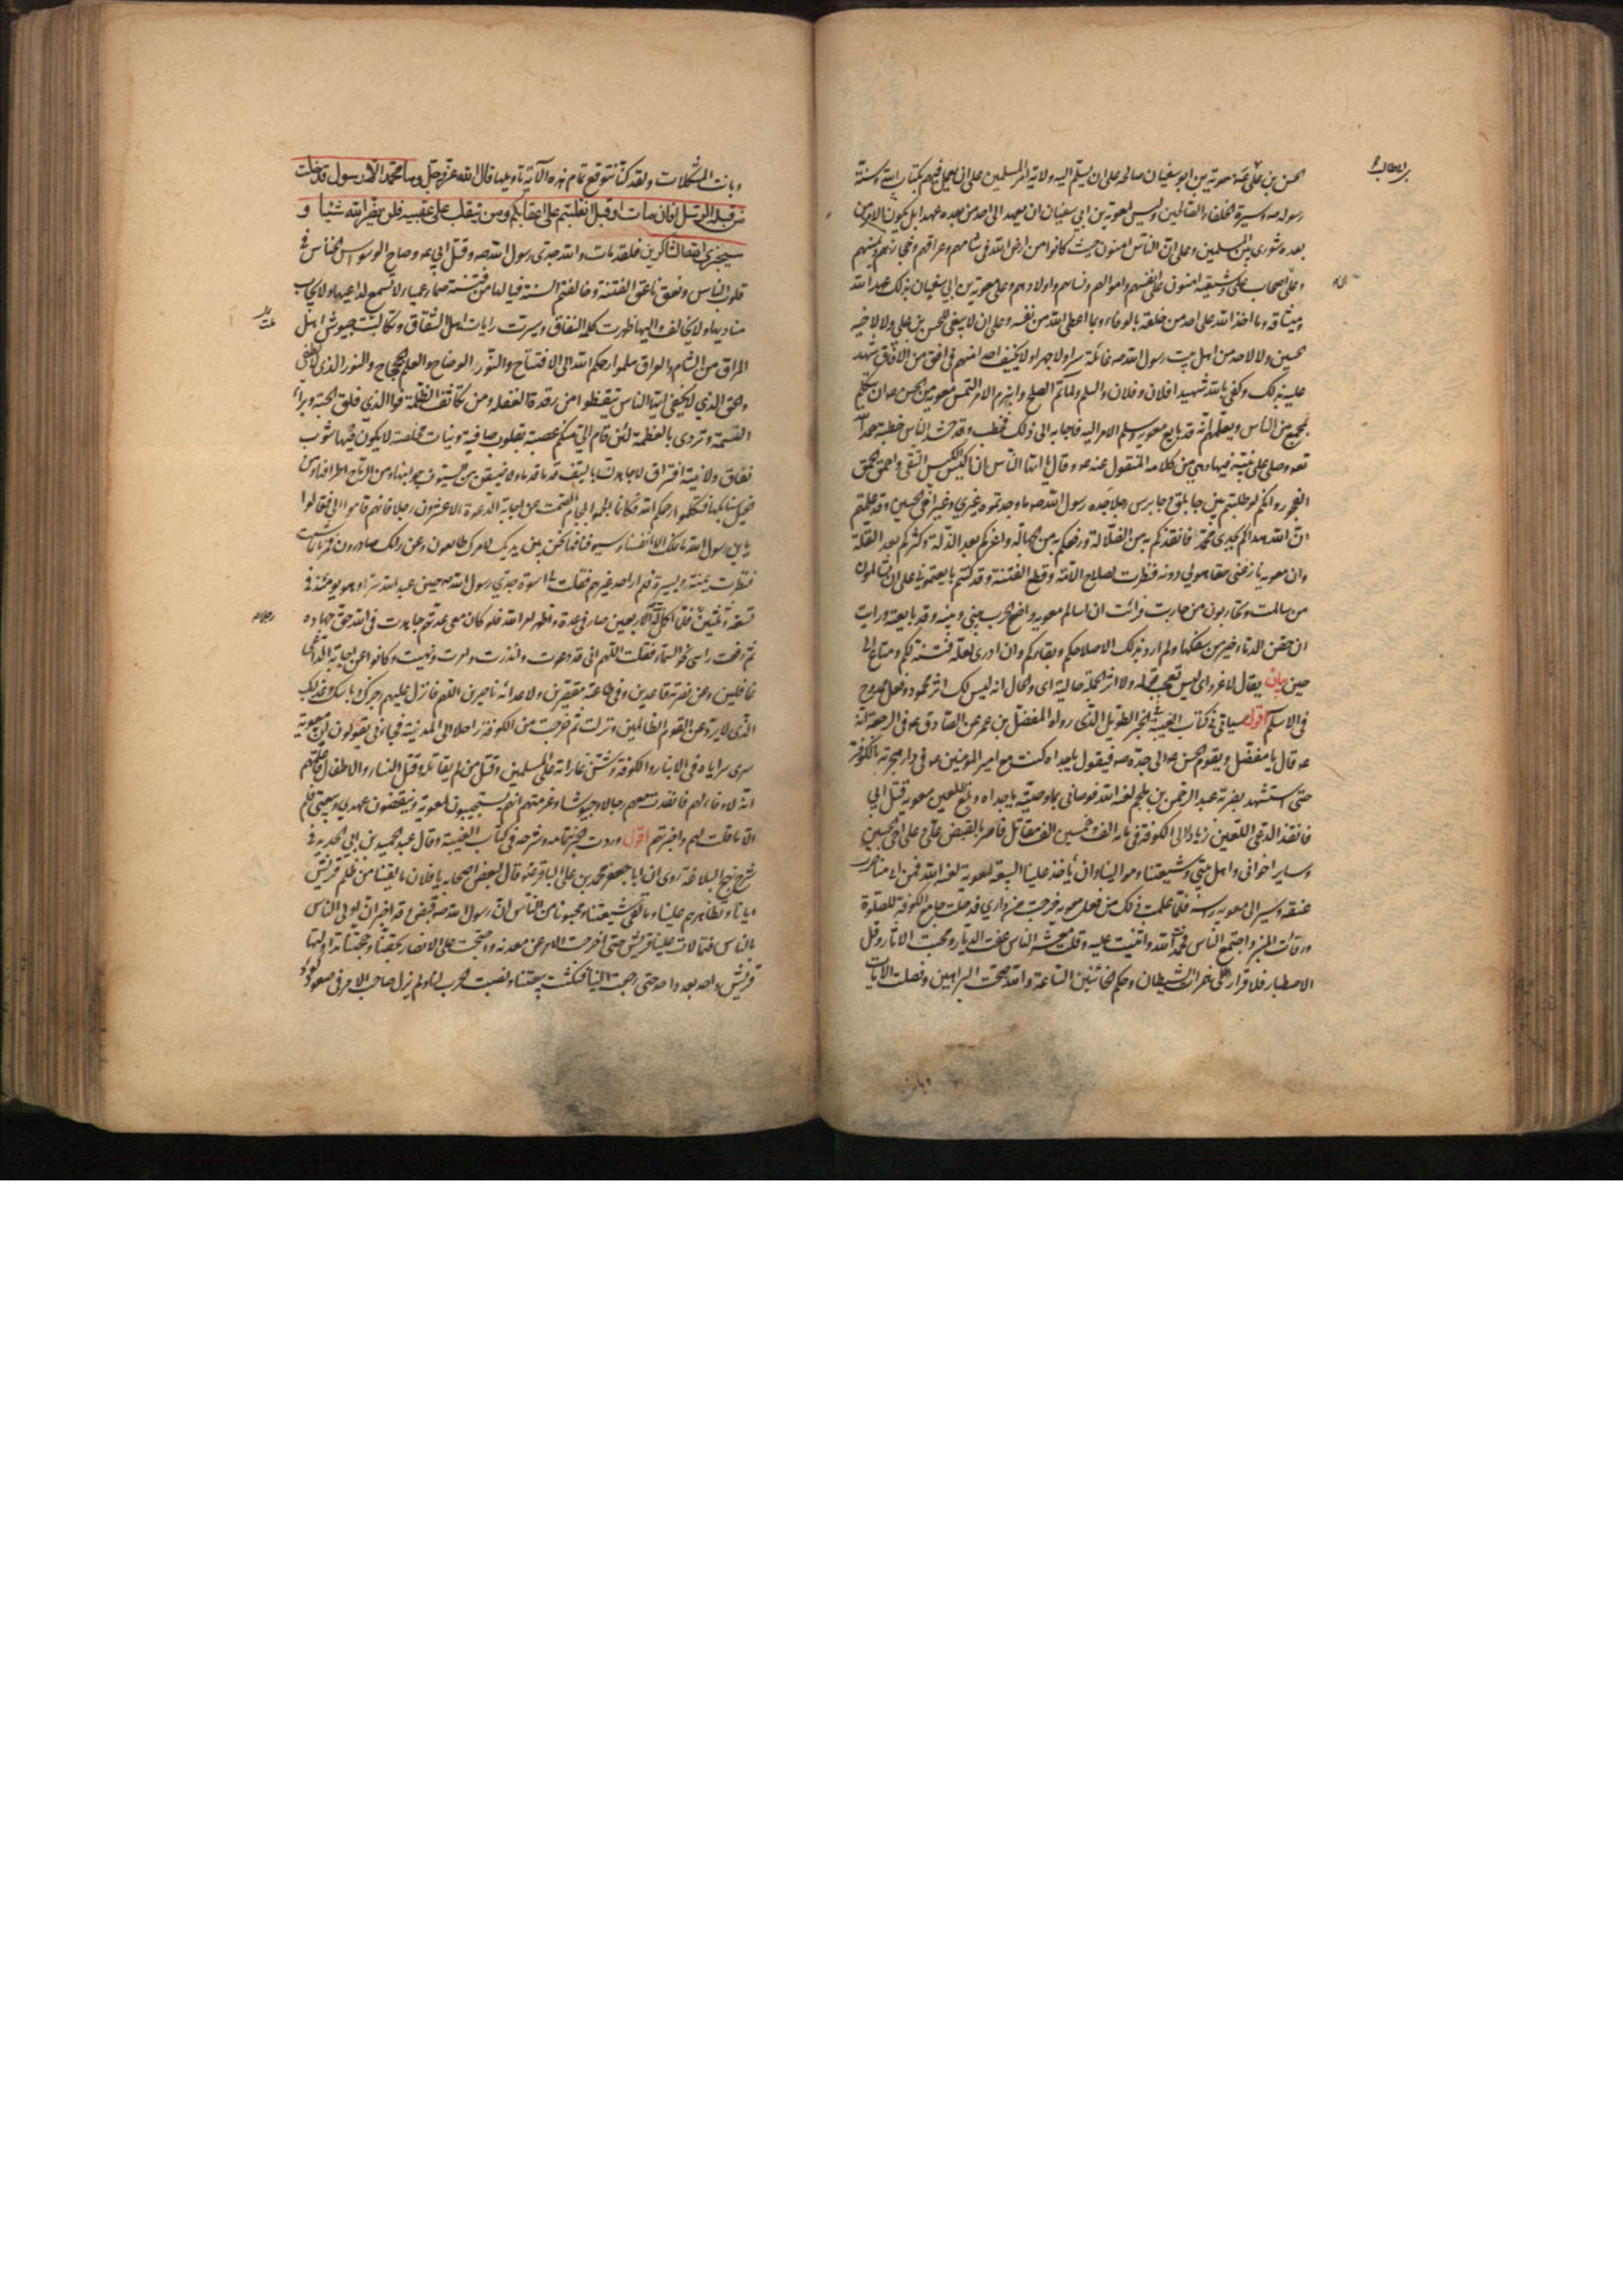 الحسن بن علي معوية بن ابي سفيان صالحه على ان يسلم اليه ولاية امر المسلمين على ان يعمل فيهم بكتاب الله وسنة
رسوله صه وسيرة الخلفاء الصالحين وليس لمعوية بن ابي سفيان ان يعهد الى احد من بعده عهدا بل يكون الامر من
بعده شورى بين المسلمين وعلى ان الناس امنون حيث كانوا من ارض الله في شامهم وعراقهم وحجازهم ويمنهم
وعلى ان اصحاب علي وشيعته امنون على انفسهم واموالهم ونسائهم واولادهم وعلى معوية بن ابي سفيان بذلك عهد الله
وميثاقه وما اخذ الله على احد من خلقه بالوفاء وبما اعطى الله من نفسه وعلى ان لا يبغي للحسن بن علي ولا لاخيه
الحسين ولا لاحد من اهل بيت رسول الله صه غائلة سرا ولا جهرا ولا يخيف احدا منهم في افق من الافاق شهد
عليه بذلك وكفى بالله شهيدا فلان وفلان والسلم ولما تم الصلح وانبرم الامر التمس معوية من الحسن ع ان يتكلم
بمجمع من الناس ويعلمهم انه قد بايع معوية وسلم الامر اليه فاجابه الى ذلك فخطب وقد حشد الناس خطبة حمد الله
تعه وصلى على نبيه فيها وهي من كلامه المنقول عنه ع وقال ايها الناس ان اكيس الكيس التقى واحمق الحمق
الفجور وانكم لو طلبتم بين جابلق وجابرس رجلا جده رسول الله صه ما وجدتموه غيري وغير اخي الحسين وقد علمتم
ان الله هداكم بجدي محمد فانقذكم به من الضلالة ورفعكم به من الجهالة واعزكم بعد الذلة وكثركم بعد القلة
وان معوية نازعني حقا هو لي دونه فنظرت لصلاح الامة وقطع الفتنة وقد كنتم بايعتموني على ان تسالمون
من سالمت وتحاربون من حاربت فرايت ان اسالم معوية واضع الحرب بيني وبينه وقد بايعته ورايت
ان حقن الدماء خير من سفكها ولم ارد بذلك الا صلاحكم وبقاءكم وان ادري لعله فتنة لكم ومتاع الى
حين بيان يقال لا غرو اي ليس بعجب ولا اثر الجملة حالية اي والحال انه ليس لك اثر محمود وفعل ممدوح
في الاسلم اقول سياتي في كتاب الغيبة في الخبر الطويل الذي رواه المفضل بن عمر عن الصادق ع في الرجعة انه
ع قال يا مفضل ويقوم الحسن ع الى جده صه فيقول يا جداه كنت مع امير المؤمنين ع في دار هجرته بالكوفة
حتى استشهد بضربة عبد الرحمن بن ملجم لعنه الله فوصاني بما وصيته يا جداه وبلغ اللعين معوية قتل ابي
فانفذ الدعي اللعين زيادا الى الكوفة في مائة الف وخمسين الف مقاتل فامر بالقبض علي وعلى اخي الحسين
وساير اخواني واهل بيتي وشيعتنا وموالينا وان ياخذ علينا البيعة لمعوية لعنه الله فمن ابى منا ضرب
عنقه وسير الى معوية راسه فلما علمت ذلك من فعل معوية خرجت من داري فدخلت جامع الكوفة للصلوة
ورقات المنبر واجتمع الناس فحمدت الله واثنيت عليه وقلت معشر الناس عفت الديار ومحيت الاثار وقل
الاصطبار فلا قرار على همزات الشيطان وحكم الخائنين الساعة والله صحت البراهين وفصلت الايات
وبانت المشكلات ولقد كنا نتوقع تمام هذه الاية تاويلها قال الله عز وجل وما محمد الا رسول قد خلت
من قبله الرسل افان مات او قتل انقلبتم على اعقابكم ومن ينقلب على عقبيه فلن يضر الله شيئا و
سيجزي الله الشاكرين فلقد مات والله جدي رسول الله صه وقتل ابي ع وصاح الوسواس الخناس في
قلوب الناس ونعق ناعق الفتنة وخالفتم السنة فيا لها من فتنة صماء عمياء لا تسمع لداعيها ولا يجاب
مناديها ولا يخالف واليها ظهرت كلمة النفاق وسيرت رايات اهل الشقاق وتكالبت جيوش اهل
المراق من الشام والعراق هلموا رحمكم الله الى الافتتاح والنور الوضاح والعلم الجحجاح والنور الذي لا يطفى
والحق الذي لا يخفى ايها الناس تيقظوا من رقدة الغفلة ومن تكاثف الظلمة فو الذي فلق الحبة وبرا
النسمة وتردى بالعظمة لئن قام الي منكم عصبة بقلوب صافية ونيات مخلصة لا يكون فيها شوب
نفاق ولا نية افتراق لاجاهدن بالسيف قدما قدما ولاضيقن من السيوف جوانبها ومن الرماح اطرافها ومن
الخيل سنابكها فتكلموا رحمكم الله فكانما الجموا بلجام الصمت عن اجابة الدعوة الا عشرون رجلا فانهم قاموا الي فقالوا
يا بن رسول الله ما نملك الا انفسنا وسيوفنا فها نحن بين يديك لامرك طائعون وعن رايك صادرون فمرنا بما شئت
فنظرت يمنة ويسرة فلم ار احدا غيرهم فقلت لي اسوة بجدي رسول الله صه حين عبد الله سرا وهو يومئذ في
تسعة وثلثين فلما اكمل الله له الاربعين صار في عدة واظهر امر الله فلو كان معي عدتهم جاهدت في الله حق جهاده
ثم رفعت راسي نحو السماء فقلت اللهم اني قد دعوت وانذرت وامرت ونهيت وكانوا عن اجابة الداعي
غافلين وعن نصرته قاعدين وفي طاعته مقصرين ولاعدائه ناصرين اللهم فانزل عليهم رجزك وباسك وعذابك
الذي لا يرد عن القوم الظالمين ونزلت ثم خرجت من الكوفة راحلا الى المدينة فجاؤني يقولون ان معوية
سرى سراياه في الانبار والكوفة وشن غاراته على المسلمين وقتل من لم يقاتله وقتل النساء والاطفال فاعلمتهم
انه لا وفاء لهم فانفذت معهم رجالا وجيوشا وعرفتهم انهم يستجيبون لمعوية وينقضون عهدي وبيعتي فلم
الا ما قلت لهم واخبرتهم اقول وردت الخبر بتمامه وشرحه في كتاب الغيبة وقال عبد الحميد بن ابي الحديد في
شرح نهج البلاغة روى ان ابا جعفر محمد بن علي الباقر ع قال لبعض اصحابه يا فلان ما لقينا من ظلم قريش
ايانا وتظاهرهم علينا وما لقي شيعتنا ومحبونا من الناس ان رسول الله صه قبض وقد اخبر ان اولى الناس
بالناس فتمالات علينا قريش حتى اخرجت الامر عن معدنه واحتجت على الانصار بحقنا وحجتنا تداولتها
قريش واحد بعد واحد حتى رجعت الينا فنكثت بيعتنا ونصبت الحرب لنا ولم يزل صاحب الامر في صعود كؤد